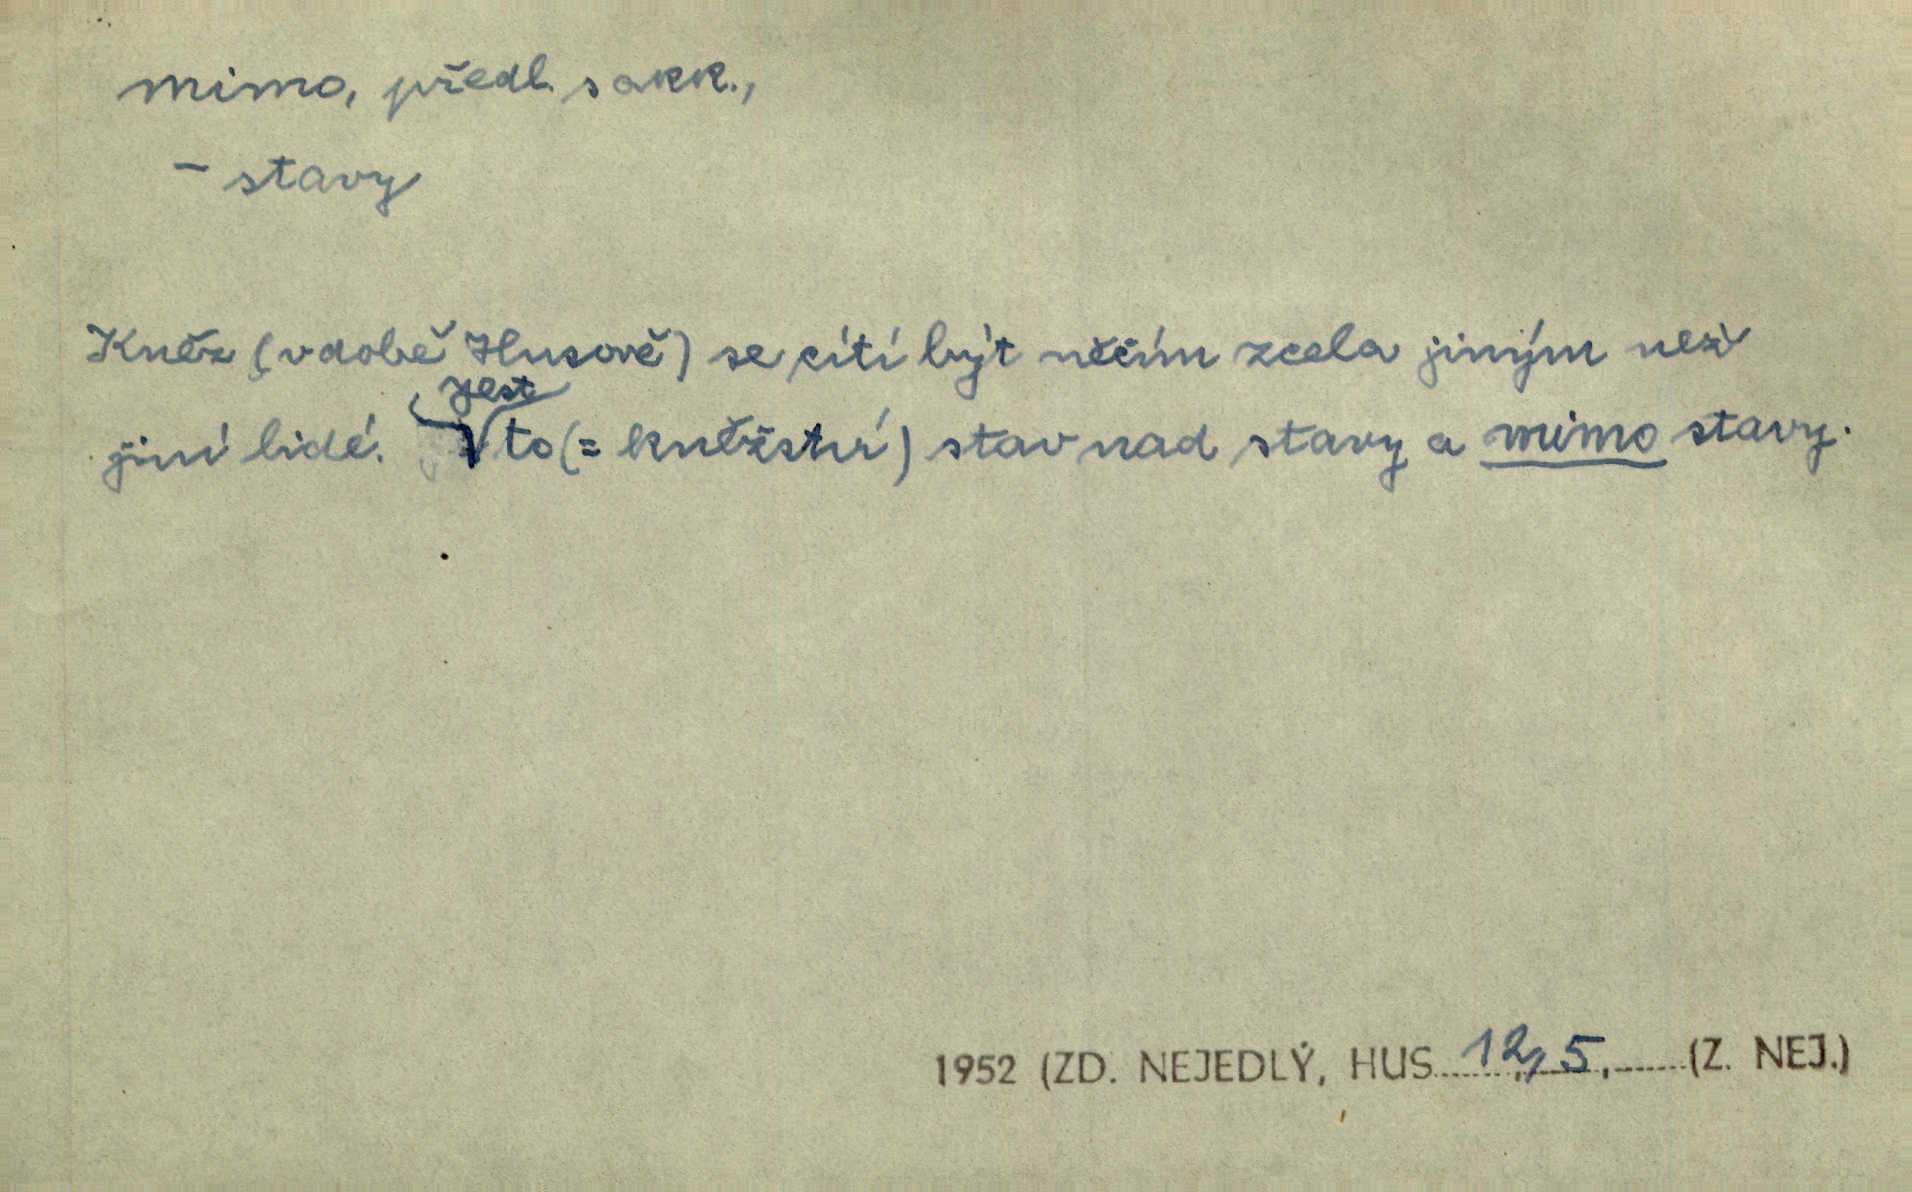 mimo, předl. s akk.,
– stavy
Kněz (v době Husově) se cítí být něčím zcela jiným než
jiní lidé. Jest to (= kněžství) stav nad stavy a mimo stavy.
1952 (ZD. NEJEDLÝ, HUS 12, 5, (Z. NEJ.)